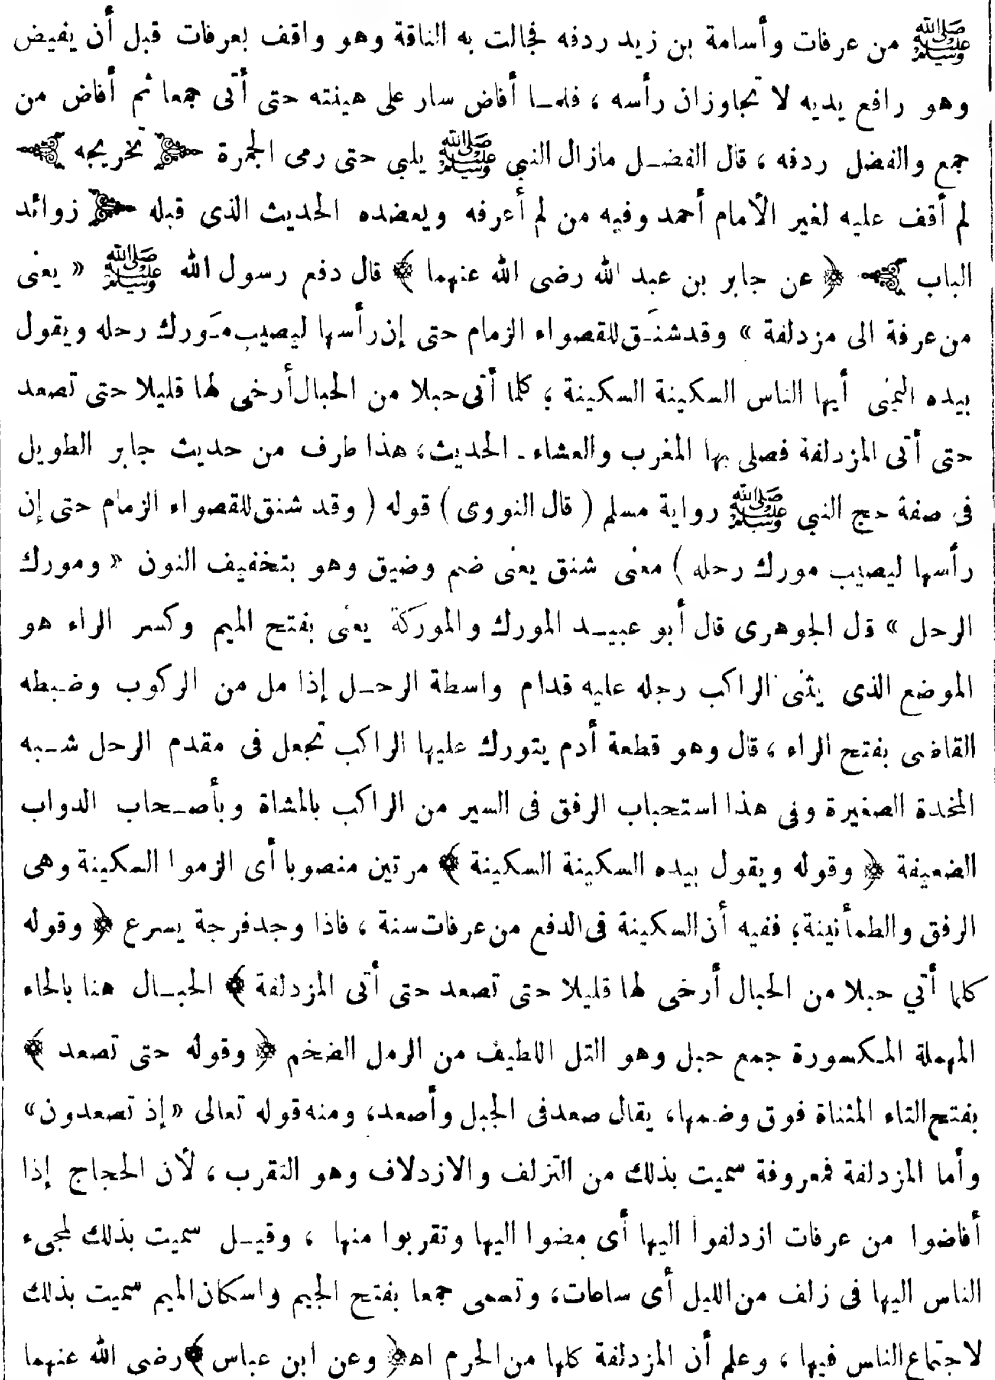 ﷺ من عرفات وأسامة بن زيد ردفه فجالت به الناقة وهو واقف بعرفات قبل أن يفيض
وهو رافع يديه لا تجاوزان رأسه ، فلمــا أفاض سار على هينته حتى أتى جمعا ثم أفاض من
جمع والفضل ردفه ، قال الفضــل مازال النبي ﷺ يلبي حتى رمى الجمرة تخريجه
لم أقف عليه لغير الأمام أحمد وفيه من لم أعرفه ويعضده الحديث الذى قبله زوائد
الباب ﴿ عن جابر بن عبد الله رضى الله عنهما ﴾ قال دفع رسول الله ﷺ « يعنى
من عرفة الى مزدلفة » وقد شنَـق للقصواء الزمام حتى إن رأسها ليصيب مَـورك رحله ويقول
بيده اليمنى أيها الناس السكينة السكينة ؛ كلما أتى حبلا من الحبال أرخى لها قليلا حتى تصعد
حتى أتى المزدلفة فصلى بها المغرب والعشاء ـ الحديث، هذا طرف من حديث جابر الطويل
فى صفة حج النبي ﷺ رواية مسلم ( قال النووى ) قوله ( وقد شنق للقصواء الزمام حتى إن
رأسها ليصيب مورك رحله ) معنى شنق يعنى ضم وضيق وهو بتخفيف النون « ومورك
الرحل » قال الجوهرى قال أبو عبيــد المورك والموركة يعنى بفتح الميم وكسر الراء هو
الموضع الذى يثنى الراكب رجله عليه قدام واسطة الرحــل إذا مل من الركوب وضبطه
القاضى بفتح الراء ، قال وهو قطعة أدم يتورك عليها الراكب تجعل فى مقدم الرحل شــبه
المخدة الصغيرة وفى هذا استحباب الرفق فى السير من الراكب بالمشاة وبأصــحاب الدواب
الضعيفة ﴿ وقوله ويقول بيده السكينة السكينة ﴾ مرتين منصوبا أى الزموا السكينة وهى
الرفق والطمأنينة؛ ففيه أن السكينة فى الدفع من عرفات سنة ، فاذا وجد فرجة يسرع ﴿ وقوله
كلما أتي حبلا من الحبال أرخى لها قليلا حتى تصعد حتى أتى المزدلفة ﴾ الحبــال هنا بالحاء
المهملة المكسورة جمع حبل وهو التل اللطيف من الرمل الضخم ﴿ وقوله حتى تصعد ﴾
بفتح التاء المثناة فوق وضمها، يقال صعد فى الجبل وأصعد، ومنه قوله تعالى «إذ تصعدون»
وأما المزدلفة فمعروفة سميت بذلك من التزلف والازدلاف وهو التقرب ، لأن الحجاج إذا
أفاضوا من عرفات ازدلفوا اليها أى مضوا اليها وتقربوا منها ، وقيــل سميت بذلك لمجىء
الناس اليها فى زلف من الليل أى ساعات، وتسمى جمعا بفتح الجيم واسكان الميم سميت بذلك
لاجتماع الناس فيها ، وعلم أن المزدلفة كلها من الحرم اه ﴿ وعن ابن عباس ﴾ رضى الله عنهما